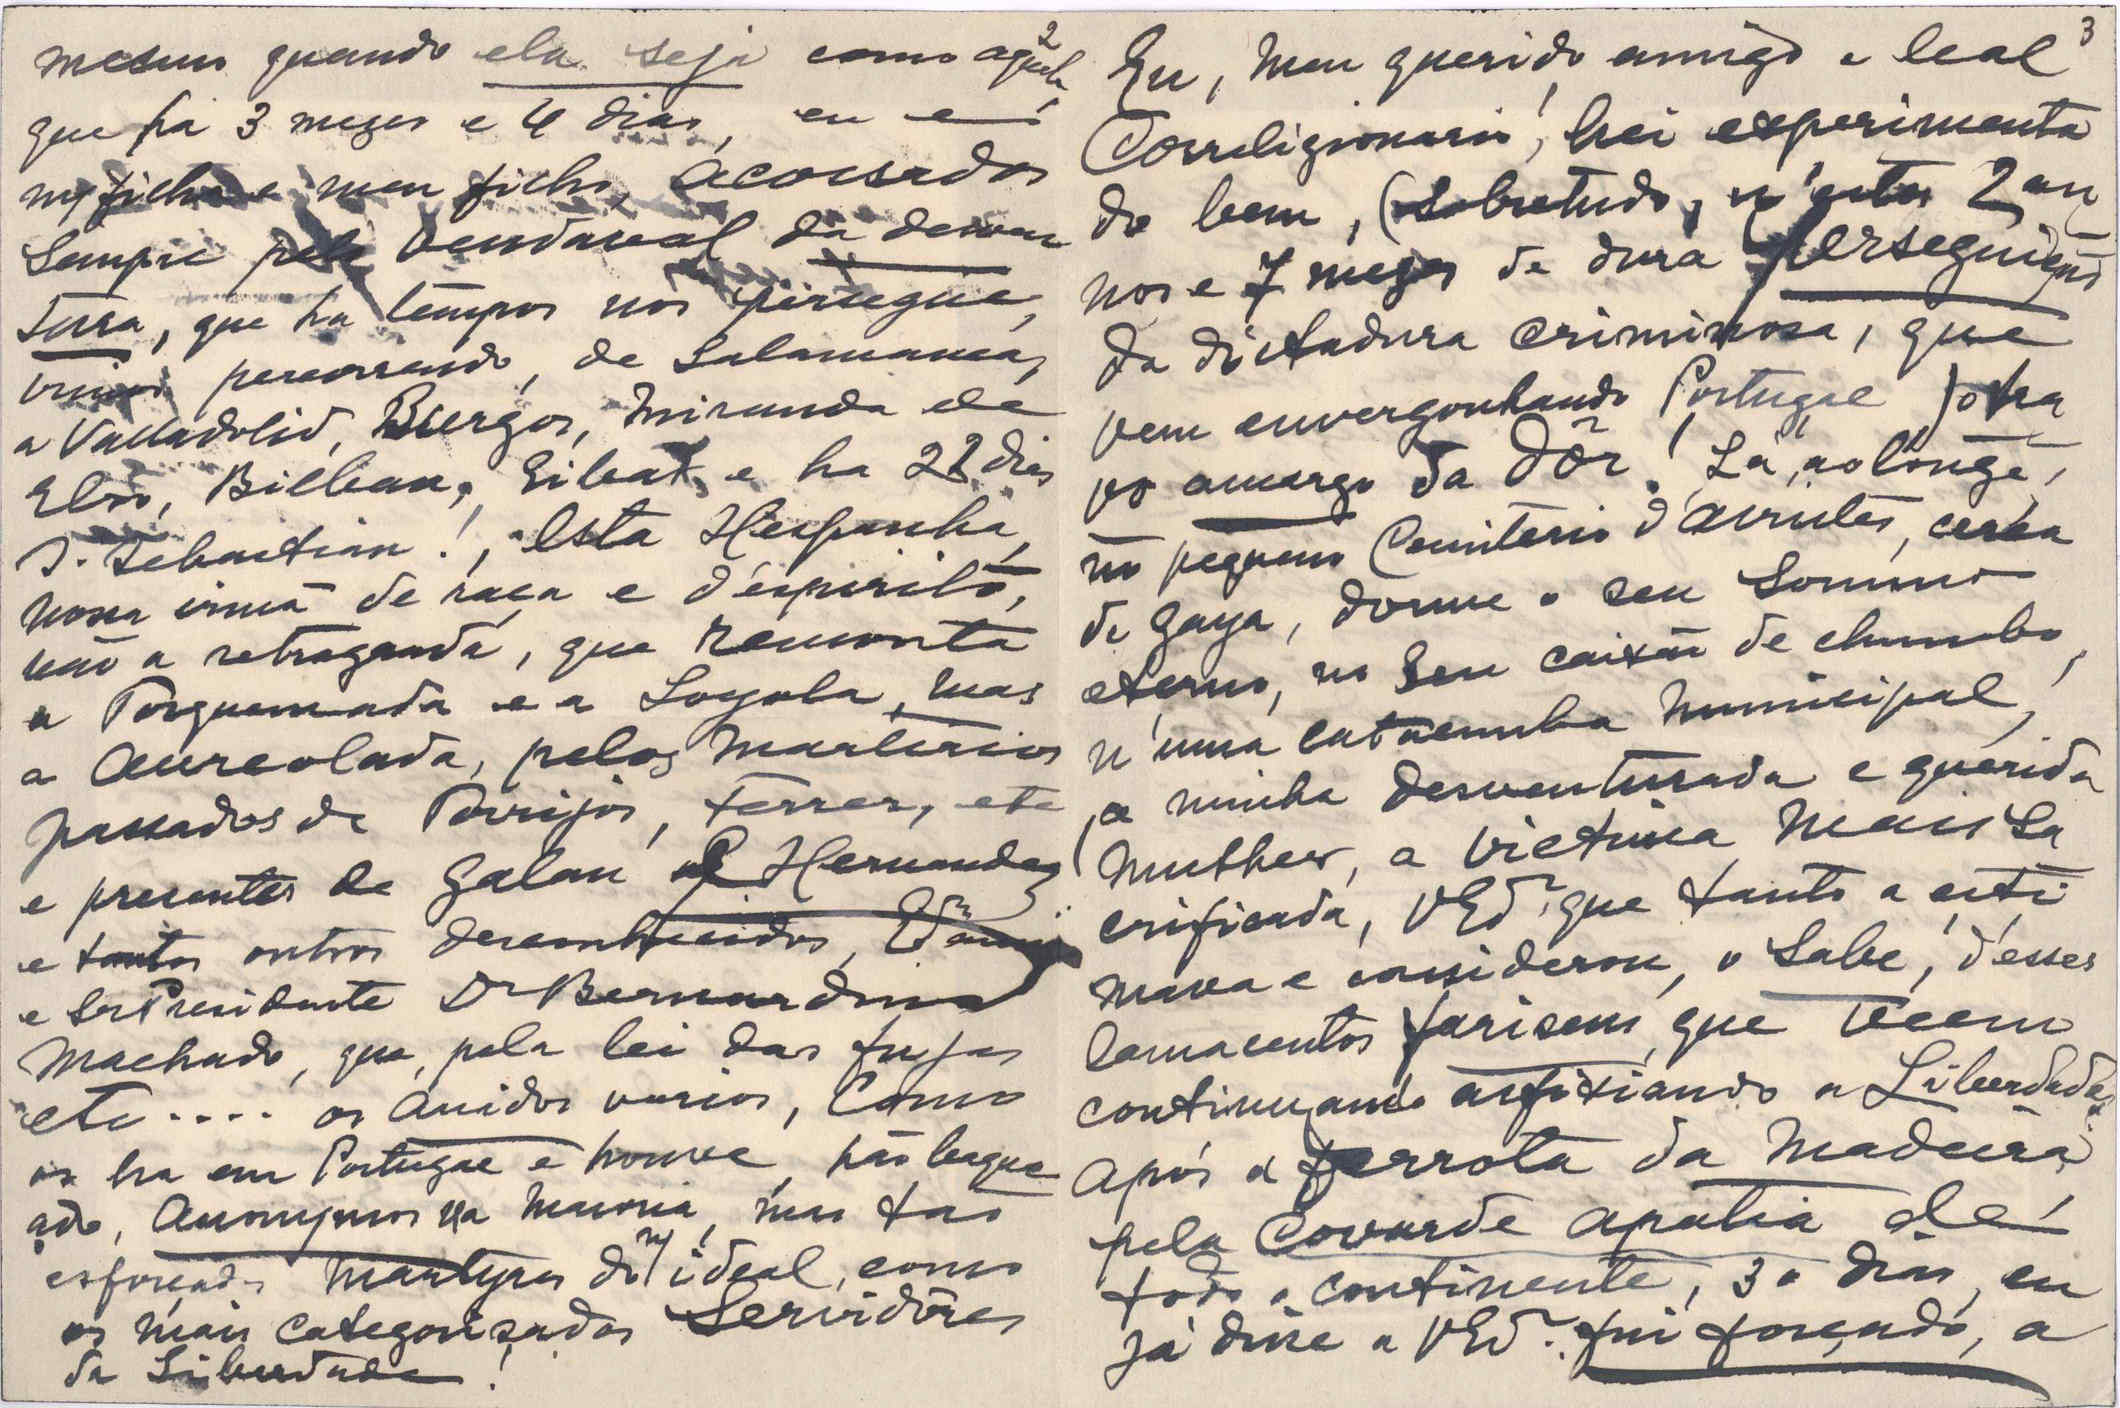 2
mesmo quando ela seja como aquela
que ha 3 mezes e 4 dias, eu e
mª filha e meu filho, acossados
sempre pelo vendaval da desven
tura, que ha tempos nos persegue,
vimos percorrendo, de Salamanca,
a Valladolid, Burgos, Miranda de
Ebro, Bilbau, Eibar, e ha 22 dias
S. Sebastian!, esta Hespanha,
nossa irmã de raça e d'espirito,
não a retrograda, que remonta
a Torquemada e a Loyola, mas
a aureolada, pelos martirios
passados de Torrijos, Ferrer, etc
e presentes de Galan e Hernandez
e tantos outros desconhecidos,
e Sr Presidente Dr Bernardino
Machado, que, pela lei das fugas
etc.... os Anidos varios, como
os ha em Portugal e houve, hão
ado, anonymos na maioria, mas tão
esforçados martyres do ideal, como
os mais categorisados servidôres
da Liberdade!
3
Eu, meu querido amigo e leal
Correligionario, hei experimenta
do bem, (sobretudo, n'estes 2 an
nos e 7 mezes de dura perseguição
da dictadura criminosa, que
vem envergonhando Portugal) o tra
vo amargo da dôr! Lá, ao longe,
no pequeno Cemiterio d'Avintes, cerca
de Gaya, dorme o seu somno
eterno, no seu caixão de chumbo,
n'uma catacumba municipal,
a minha desventurada e querida
mulher, a victima mais sa
crificada, VExª que tanto a esti
mava e considerou, o sabe, d'esses
lamacentos fariseus, que veem
continuando asfixiando a Liberdade.
Após a derrota da Madeira
pela covarde apatia de
todo o continente, 3 dias, eu
já disse a VExª. fui forçado, a